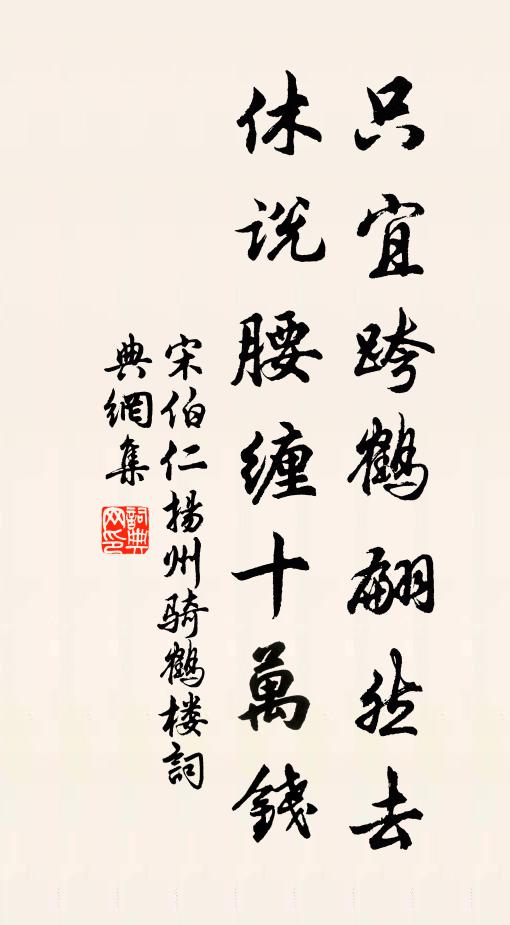 只宜跨鹤翩然去
休说腰缠十萬錢
宋伯仁揚州骑鹤楼詞
典網集
詞典
网印